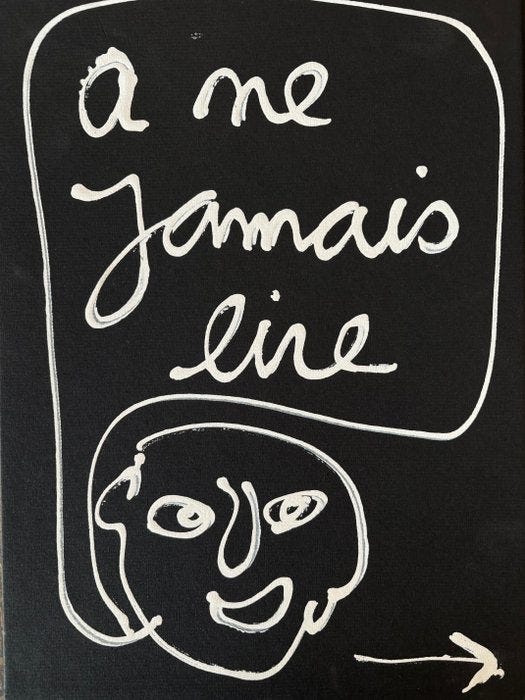 a ne
jamais
lire